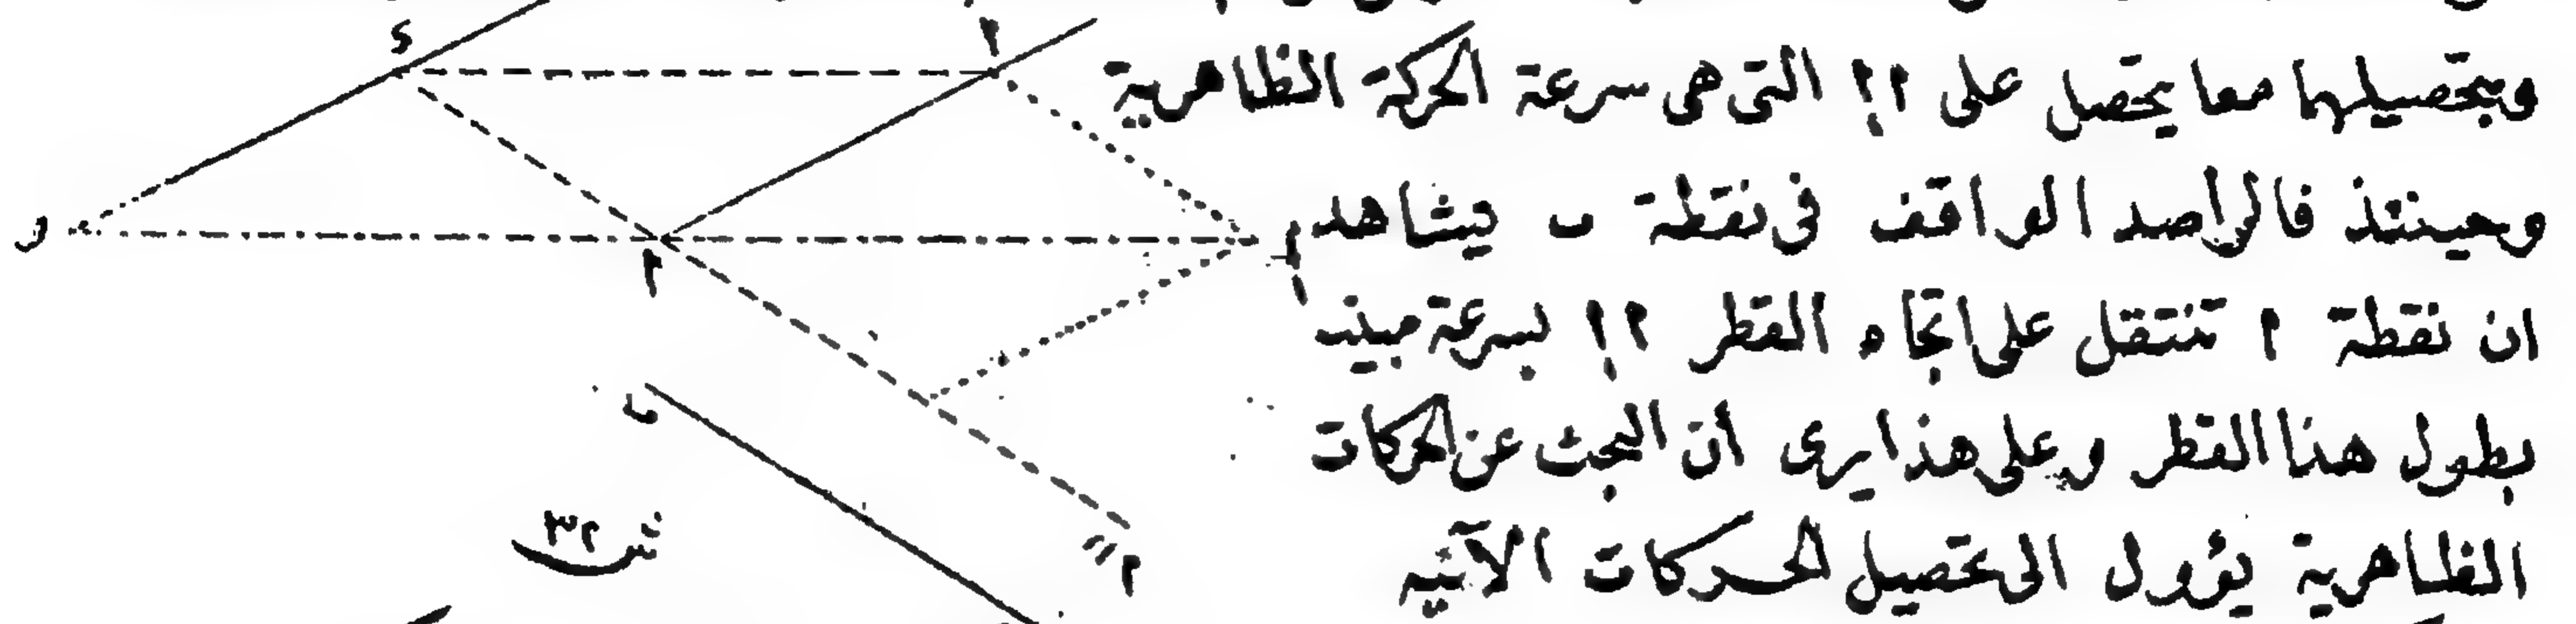 وبتحصيلهما معا يتحصل على ٢ ؟ التى هى سرعة الحركة الظاهرية
وحينئذ فالراصد الواقف فى نقطة ٮ يشاهد
ان نقطة ٢ تنتقل على اتجاه القطر ٢ ! بسرعة مبينه
بطول هذا القطر وعلى هذا يرى أن البحث عن الحركات
الظاهرية يؤول الى تحصيل الحركات الآتيه
ء
٢
و
٢
ٮ
٢"
شـ ٣٢